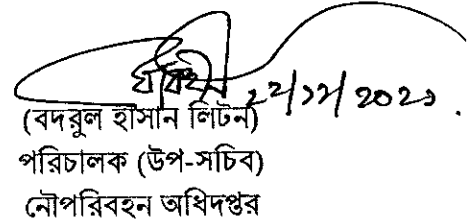 ২২/১২/২০২১
(বদরুল হাসান লিটন)
পরিচালক (উপ-সচিব)
নৌপরিবহন অধিদপ্তর